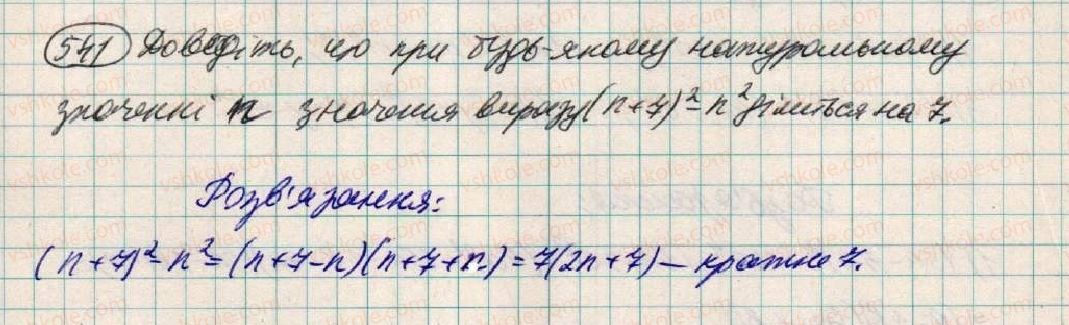 541 Доведіть, що при будь-якому натуральному
значенні n значення виразу (n+7)²-n² ділиться на 7.
Розв'язання:
(n+7)²-n²=(n+7-n)(n+7+n)=7(2n+7)-кратне 7.